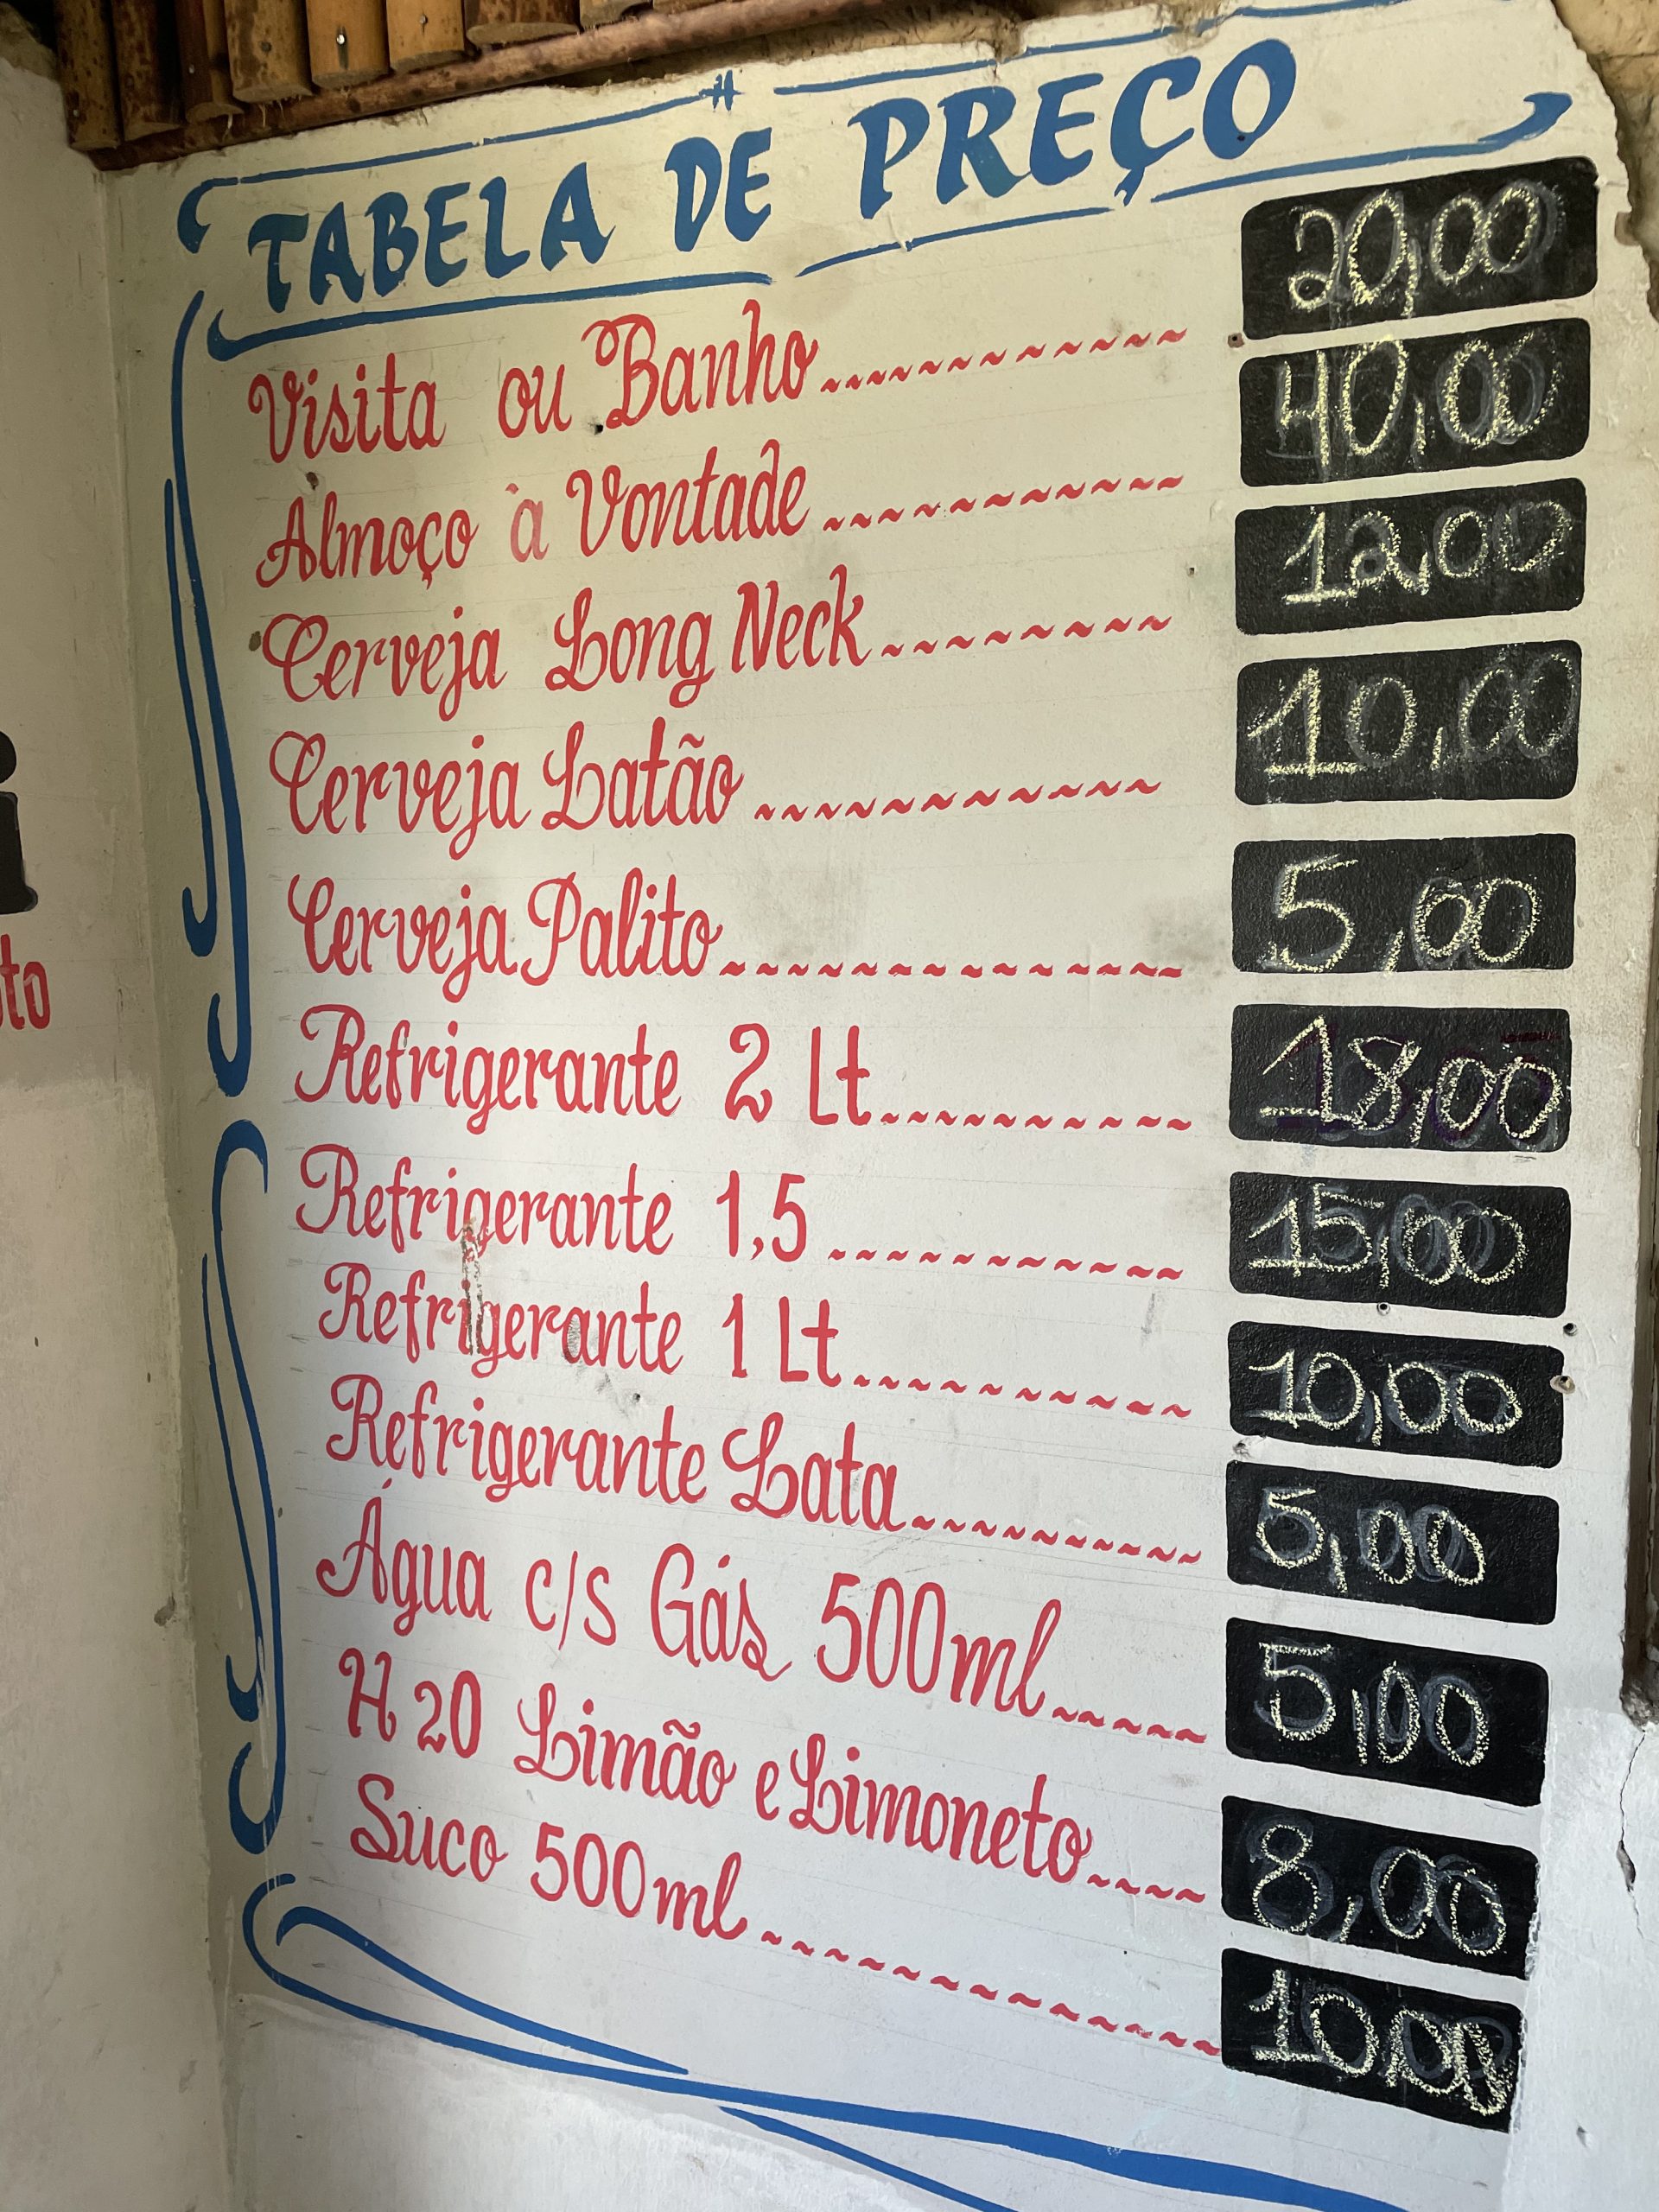 TABELA DE PREÇO
Visita ou Banho 20,00
Almoço à Vontade 40,00
Cerveja Long Neck 12,00
Cerveja Latão 10,00
Cerveja Palito 5,00
Refrigerante 2 Lt 18,00
Refrigerante 1,5 15,00
Refrigerante 1 Lt 10,00
Refrigerante Lata 5,00
Água c/s Gás 500ml 5,00
H20 Limão e Limoneto 8,00
Suco 500ml 10,00